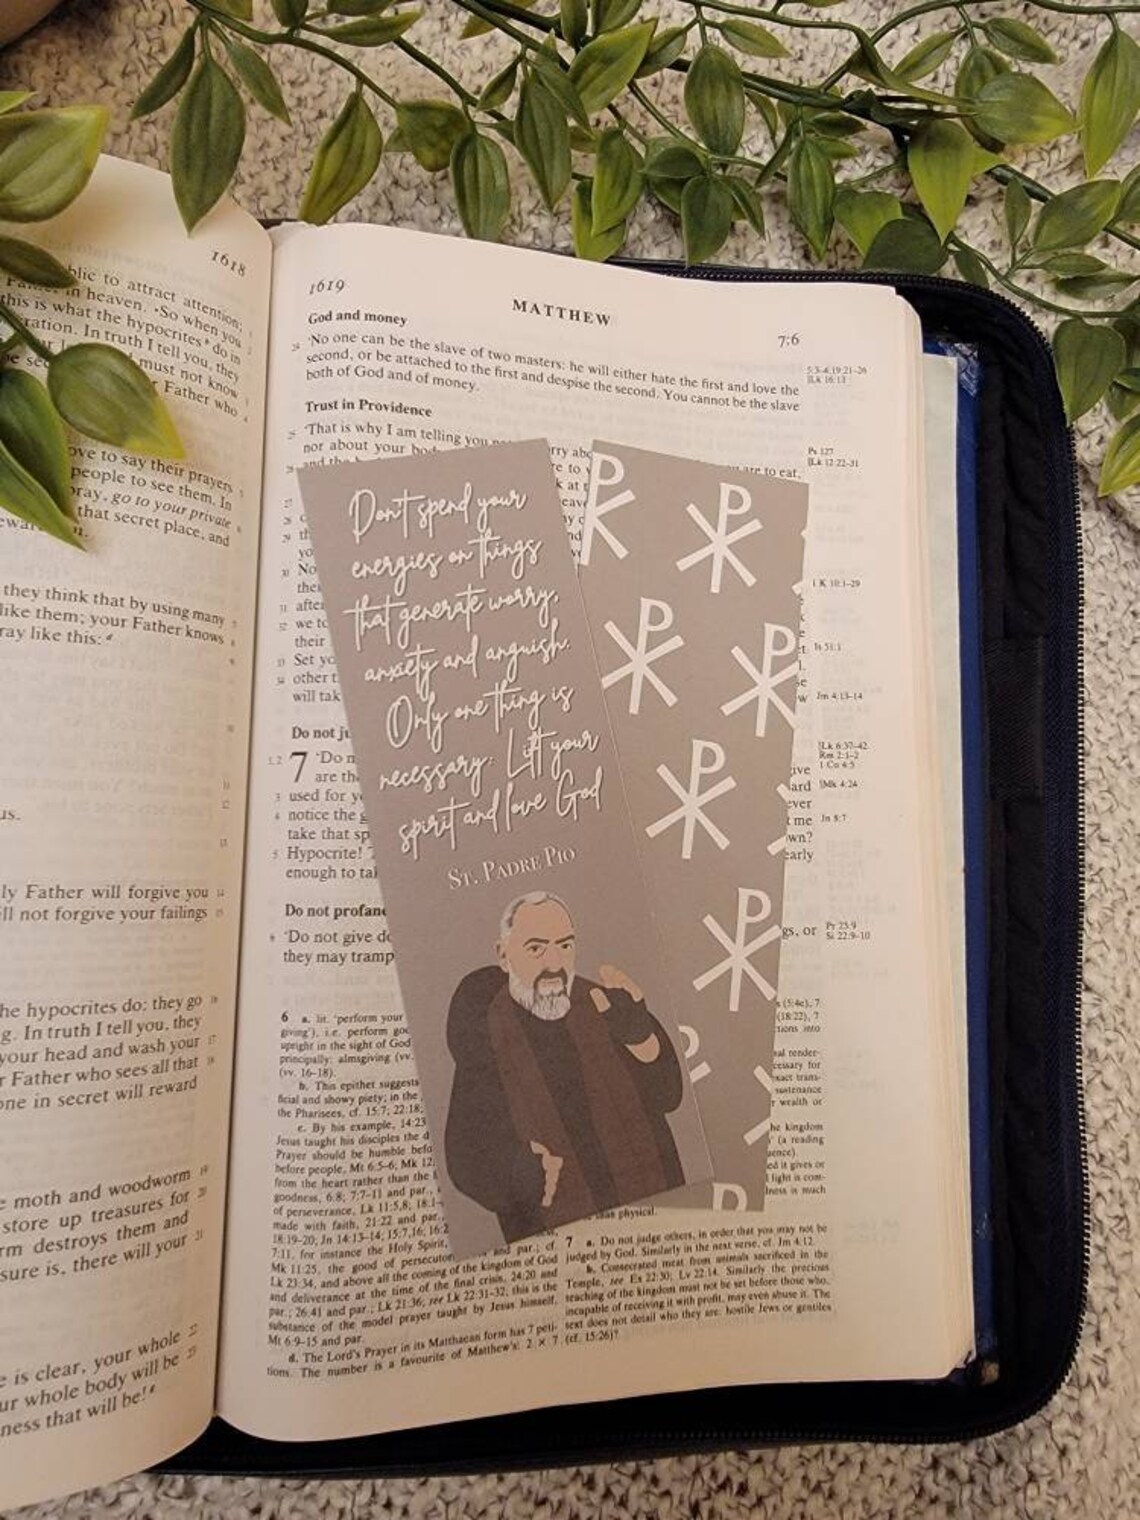 1618
blic to attract attention;
Father in heaven. ·So when you
this is what the hypocrites do in
ration. In truth I tell you, they
must not know
Father who
ove to say their prayers
people to see them. In
pray, go to your private
that secret place, and
they think that by using many
like them; your Father knows
ray like this:
us.
ly Father will forgive you 14
ll not forgive your failings 15
he hypocrites do: they go 16
g. In truth I tell you, they
your head and wash your 17
r Father who sees all that 18
one in secret will reward
e moth and woodworm 19
store up treasures for 20
rm destroys them and
sure is, there will your 21
e is clear, your whole 22
ur whole body will be 23
ness that will be!
1619
MATTHEW
7:6
God and money
24 ‘No one can be the slave of two masters: he will either hate the first and love the
second, or be attached to the first and despise the second. You cannot be the slave
both of God and of money.
5:3-4;19:21-26
‖Lk 16:13
Trust in Providence
25 ‘That is why I am telling you
nor about your
are to eat,
Ps 127
‖Lk 12:22-31
1 K 10:1-29
Is 51:1
Jm 4:13-14
31 after
32 we to
their
33 Set yo
34 other t
will tak
Do not ju
1,2 7 ‘Do n
are the
3 used for y
4 notice the
take that sp
5 Hypocrite!
enough to ta
‖Lk 6:37-42
Rm 2:1-2
1 Co 4:5
‖Mk 4:24
Jn 8:7
Do not profane
6 ‘Do not give do
they may tramp
gs, or
Pr 23:9
Si 22:9-10
Don't spend your
energies on things
that generate worry,
anxiety and anguish.
Only one thing is
necessary: Lift your
spirit and love God
St. Padre Pio
6 a. lit. ‘perform your
giving’), i.e. perform goo
upright in the sight of God
principally: almsgiving (vv.
(vv. 16-18).
b. This epithet suggests
ficial and showy piety; in the
the Pharisees, cf. 15:7; 22:18;
c. By his example, 14:23
Jesus taught his disciples the d
Prayer should be humble befo
before people, Mt 6:5-6; Mk 12
from the heart rather than the
goodness, 6:8; 7:7-11 and par.,
of perseverance, Lk 11:5,8; 18:1-
made with faith, 21:22 and par.,
18:19-20; Jn 14:13-14; 15:7,16; 16:2
7:11, for instance the Holy Spirit,
and par.; cf.
Mk 11:25, the good of persecutor
Lk 23:34, and above all the coming of the kingdom of God
and deliverance at the time of the final crisis, 24:20 and
par.; 26:41 and par.; Lk 21:36; see Lk 22:31-32, this is the
substance of the model prayer taught by Jesus himself,
Mt 6:9-15 and par.
d. The Lord's Prayer in its Matthaean form has 7 peti-
tions. The number is a favourite of Matthew's: 2 × 7
than physical.
7 a. Do not judge others, in order that you may not be
judged by God. Similarly in the next verse, cf. Jm 4:12.
b. Consecrated meat from animals sacrificed in the
Temple, see Ex 22:30; Lv 22:14. Similarly the precious
teaching of the kingdom must not be set before those who,
incapable of receiving it with profit, may even abuse it. The
text does not detail who they are: hostile Jews or gentiles
(cf. 15:26)?